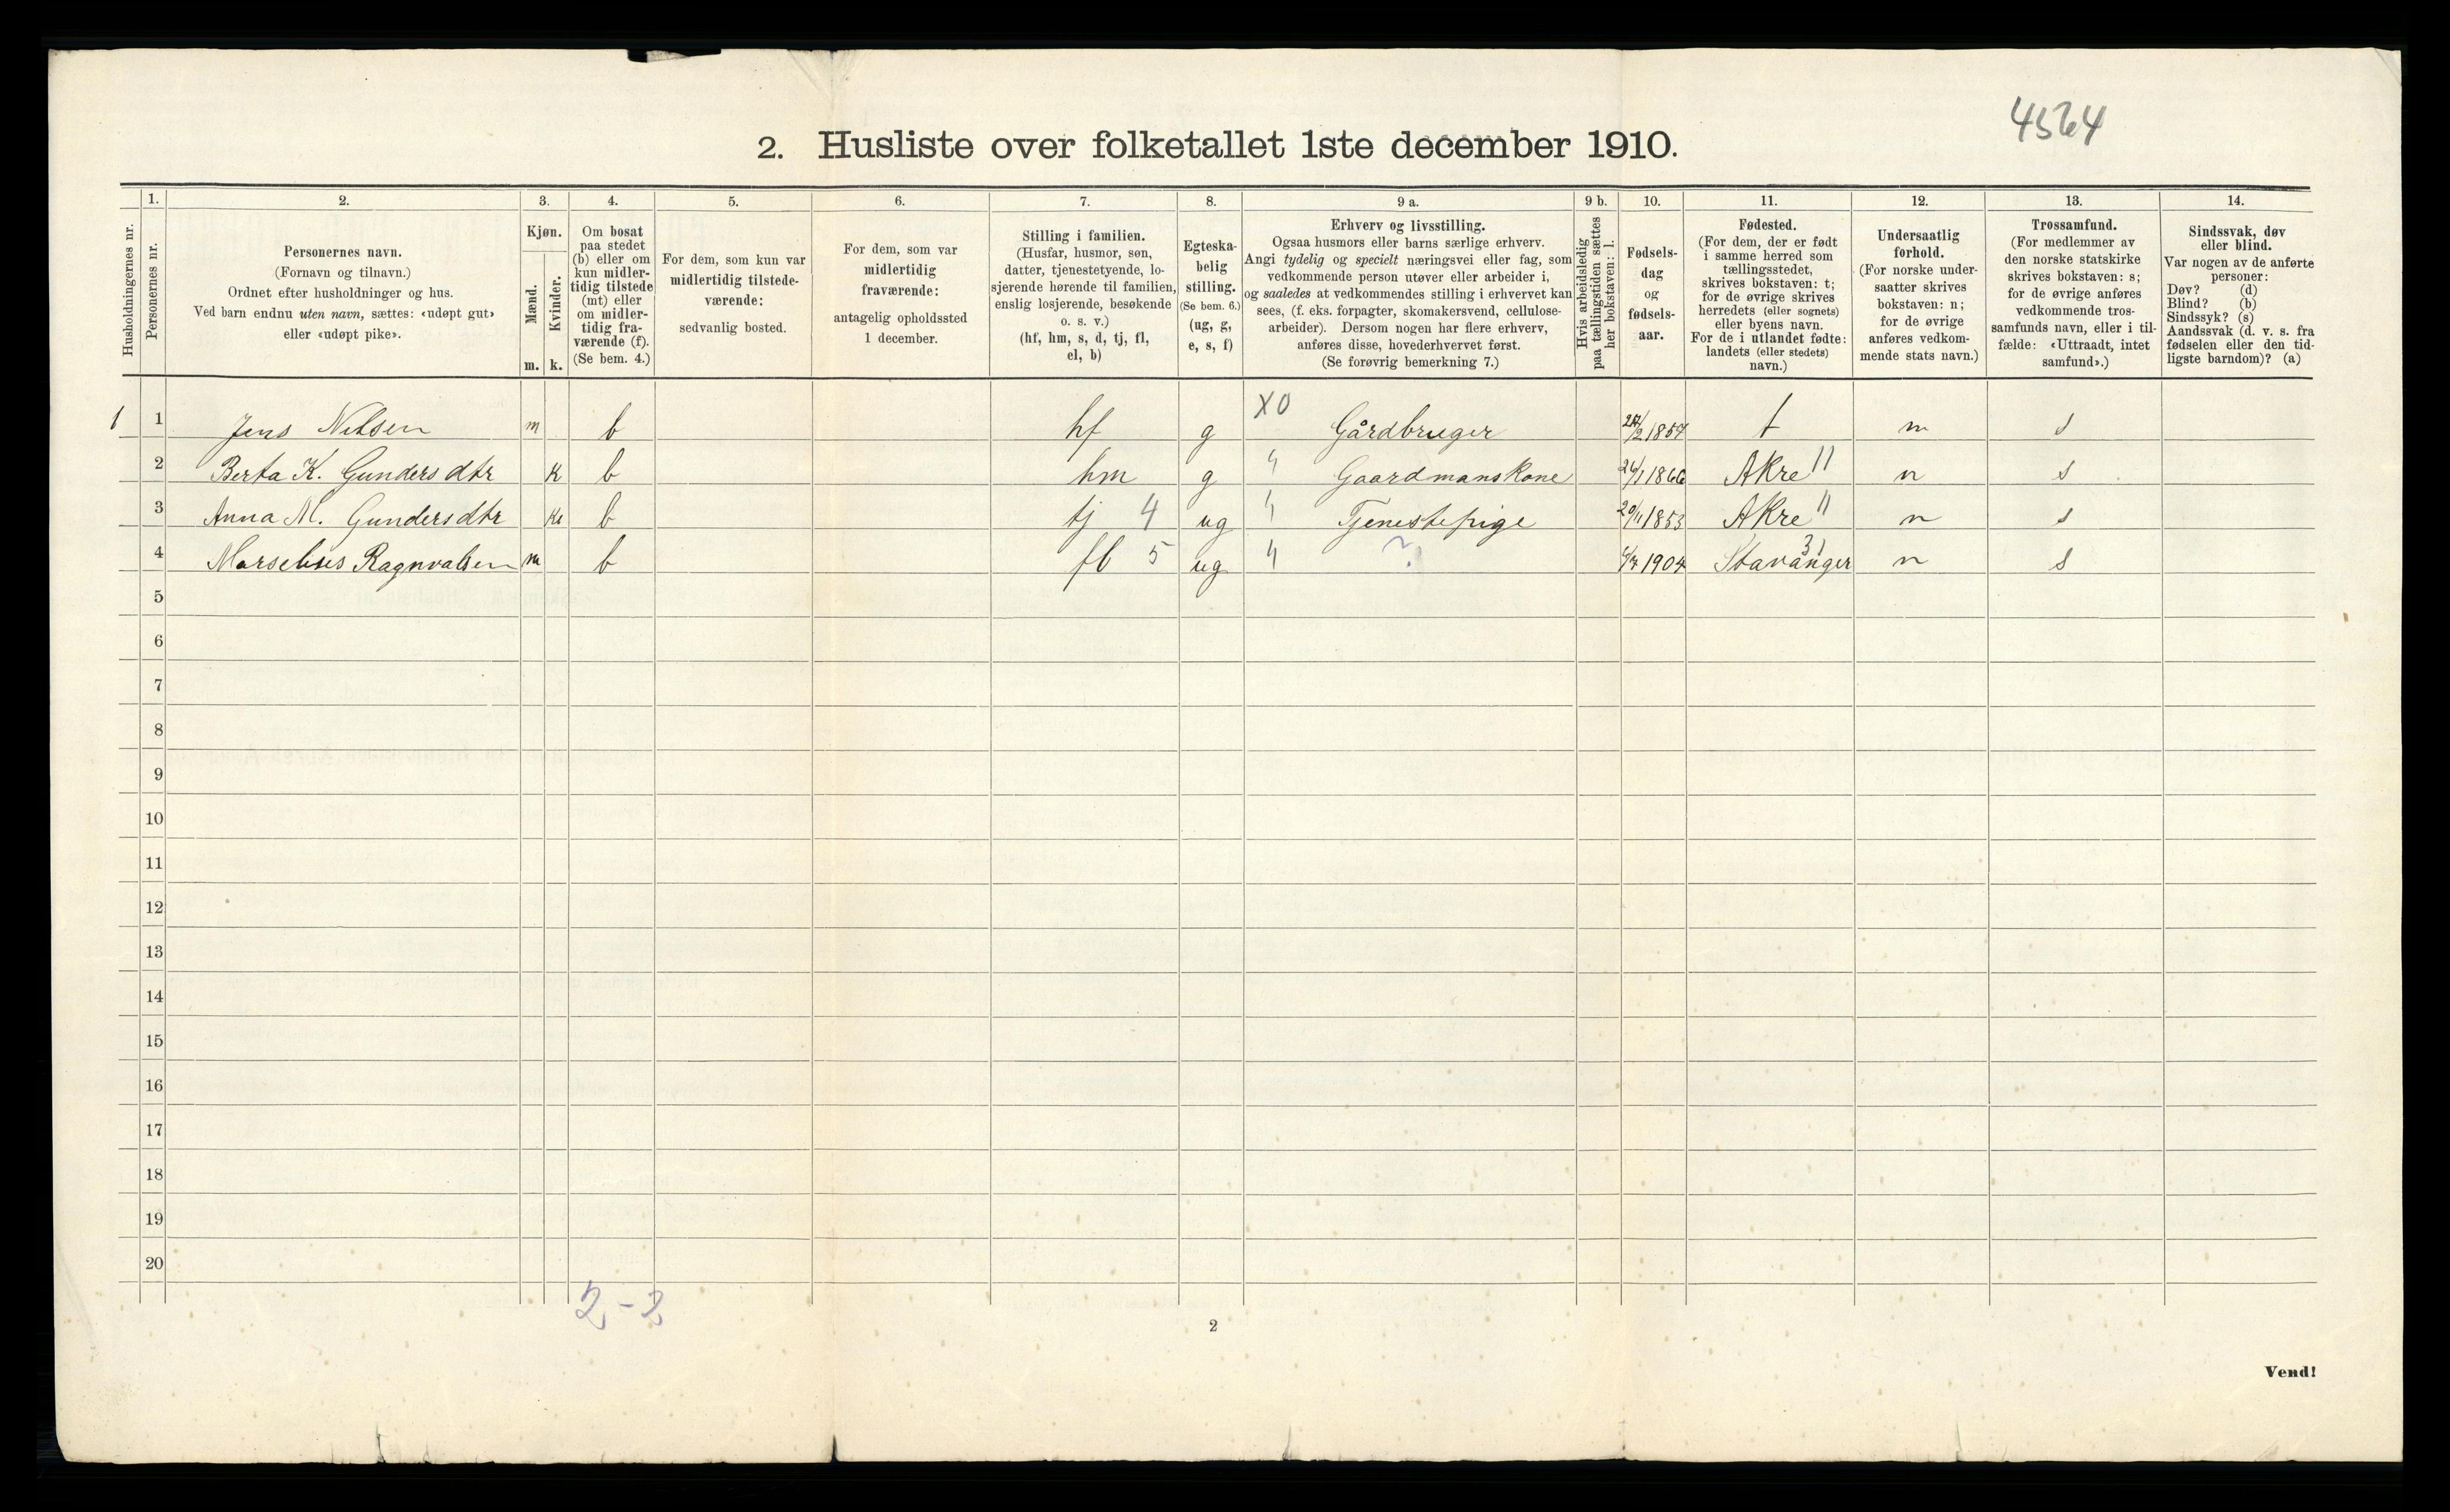 4564
2. Husliste over folketallet 1ste december 1910.
Husholdningernes nr.
1. Personernes nr.
2.
Personernes navn.
(Fornavn og tilnavn.)
Ordnet efter husholdninger og hus.
Ved barn endnu uten navn, sættes: «udøpt gut»
eller «udøpt pike».
3.
Kjøn.
Mænd. Kvinder.
m. k.
4.
Om bosat
paa stedet
(b) eller om
kun midler-
tidig tilstede
(mt) eller
om midler-
tidig fra-
værende (f).
(Se bem. 4.)
5.
For dem, som kun var
midlertidig tilstede-
værende:
sedvanlig bosted.
6.
For dem, som var
midlertidig
fraværende:
antagelig opholdssted
1 december.
7.
Stilling i familien.
(Husfar, husmor, søn,
datter, tjenestetyende, lo-
sjerende hørende til familien,
enslig losjerende, besøkende
o. s. v.)
(hf, hm, s, d, tj, fl,
el, b)
8.
Egteska-
belig
stilling.
(Se bem. 6.)
(ug, g,
e, s, f)
9 a.
Erhverv og livsstilling.
Ogsaa husmors eller barns særlige erhverv.
Angi tydelig og specielt næringsvei eller fag, som
vedkommende person utøver eller arbeider i,
og saaledes at vedkommendes stilling i erhvervet kan
sees, (f. eks. forpagter, skomakersvend, cellulose-
arbeider). Dersom nogen har flere erhverv,
anføres disse, hovederhvervet først.
(Se forøvrig bemerkning 7.)
9 b.
Hvis arbeidsledig
paa tællingstiden sættes
her bokstaven: l.
10.
Fødsels-
dag
og
fødsels-
aar.
11.
Fødested.
(For dem, der er født
i samme herred som
tællingsstedet,
skrives bokstaven: t;
for de øvrige skrives
herredets (eller sognets)
eller byens navn.
For de i utlandet fødte:
landets (eller stedets)
navn.)
12.
Undersaatlig
forhold.
(For norske under-
saatter skrives
bokstaven: n;
for de øvrige
anføres vedkom-
mende stats navn.)
13.
Trossamfund.
(For medlemmer av
den norske statskirke
skrives bokstaven: s;
for de øvrige anføres
vedkommende tros-
samfunds navn, eller i til-
fælde: «Uttraadt, intet
samfund».)
14.
Sindssvak, døv
eller blind.
Var nogen av de anførte
personer:
Døv? (d)
Blind? (b)
Sindssyk? (s)
Aandssvak (d. v. s. fra
fødselen eller den tid-
ligste barndom)? (a)
1 1 Jens Nilsen m b hf g X0 Gårdbruger 1857 t n s
2 Berta K. Gundersdtr k b hm g " Gaardmanskone 26/1 1866 Akre 11 n s
3 Anna M. Gundersdtr k b tj 4 ug " Tjenestepige 20/11 1853 Akre 11 n s
4 Marselius Ragnvalsen m b fl 5 ug " ? 1904 Stavanger 31 n s
5
6
7
8
9
10
11
12
13
14
15
16
17
18
19
20
2-2
2
Vend!